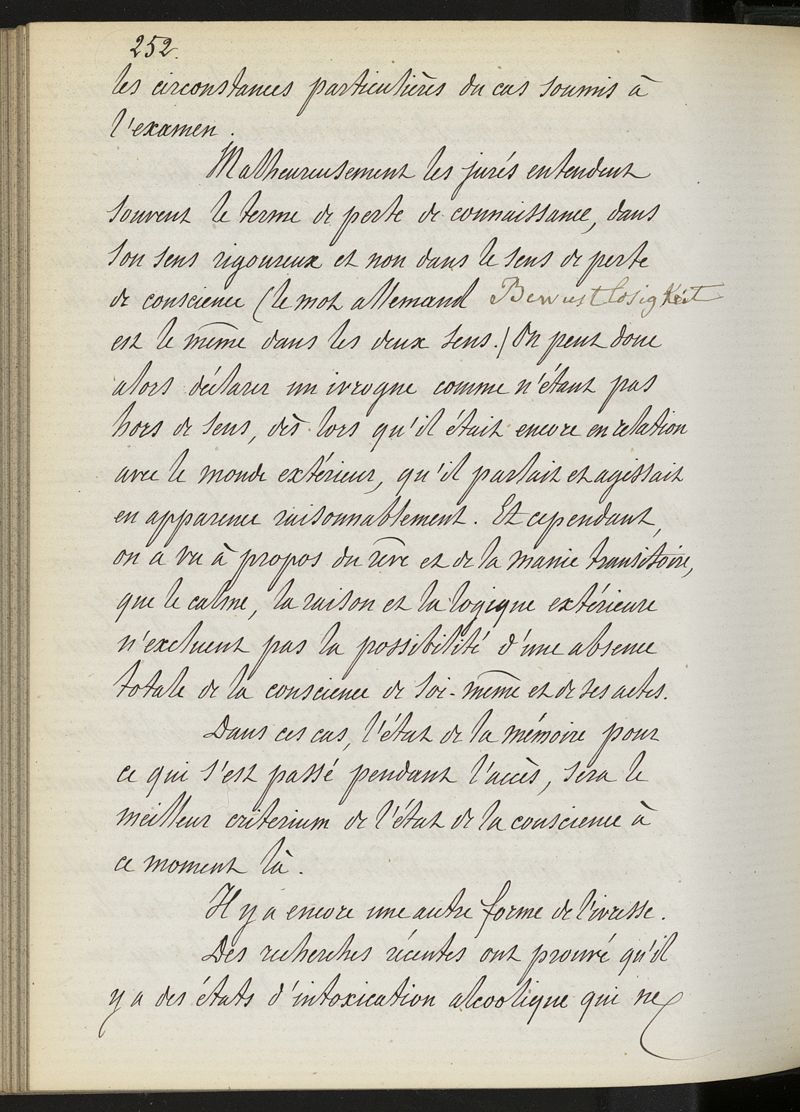 252.
les circonstances particulières du cas soumis à
l'examen.
Malheureusement les jurés entendent
souvent le terme de perte de connaissance, dans
son sens rigoureux et non dans le sens de perte
de conscience (le mot allemand Bewustlosigkeit
est le même dans les deux sens.) On peut donc
alors déclarer un ivrogne comme n'étant pas
hors de sens, dès lors qu'il était encore en relation
avec le monde extérieur, qu'il parlait et agissait
en apparence raisonnablement. Et cependant,
on a vu à propos du rêve et de la manie transitoire,
que le calme, la raison et la logique extérieure
n'excluent pas la possibilité d'une absence
totale de la conscience de soi-même et de ses actes.
Dans ces cas, l'état de la mémoire pour
ce qui s'est passé pendant l'accès, sera le
meilleur criterium de l'état de la conscience à
ce moment là.
Il y a encore une autre forme de l'ivresse.
Des recherches récentes ont prouvé qu'il
y a des états d'intoxication alcoolique qui ne